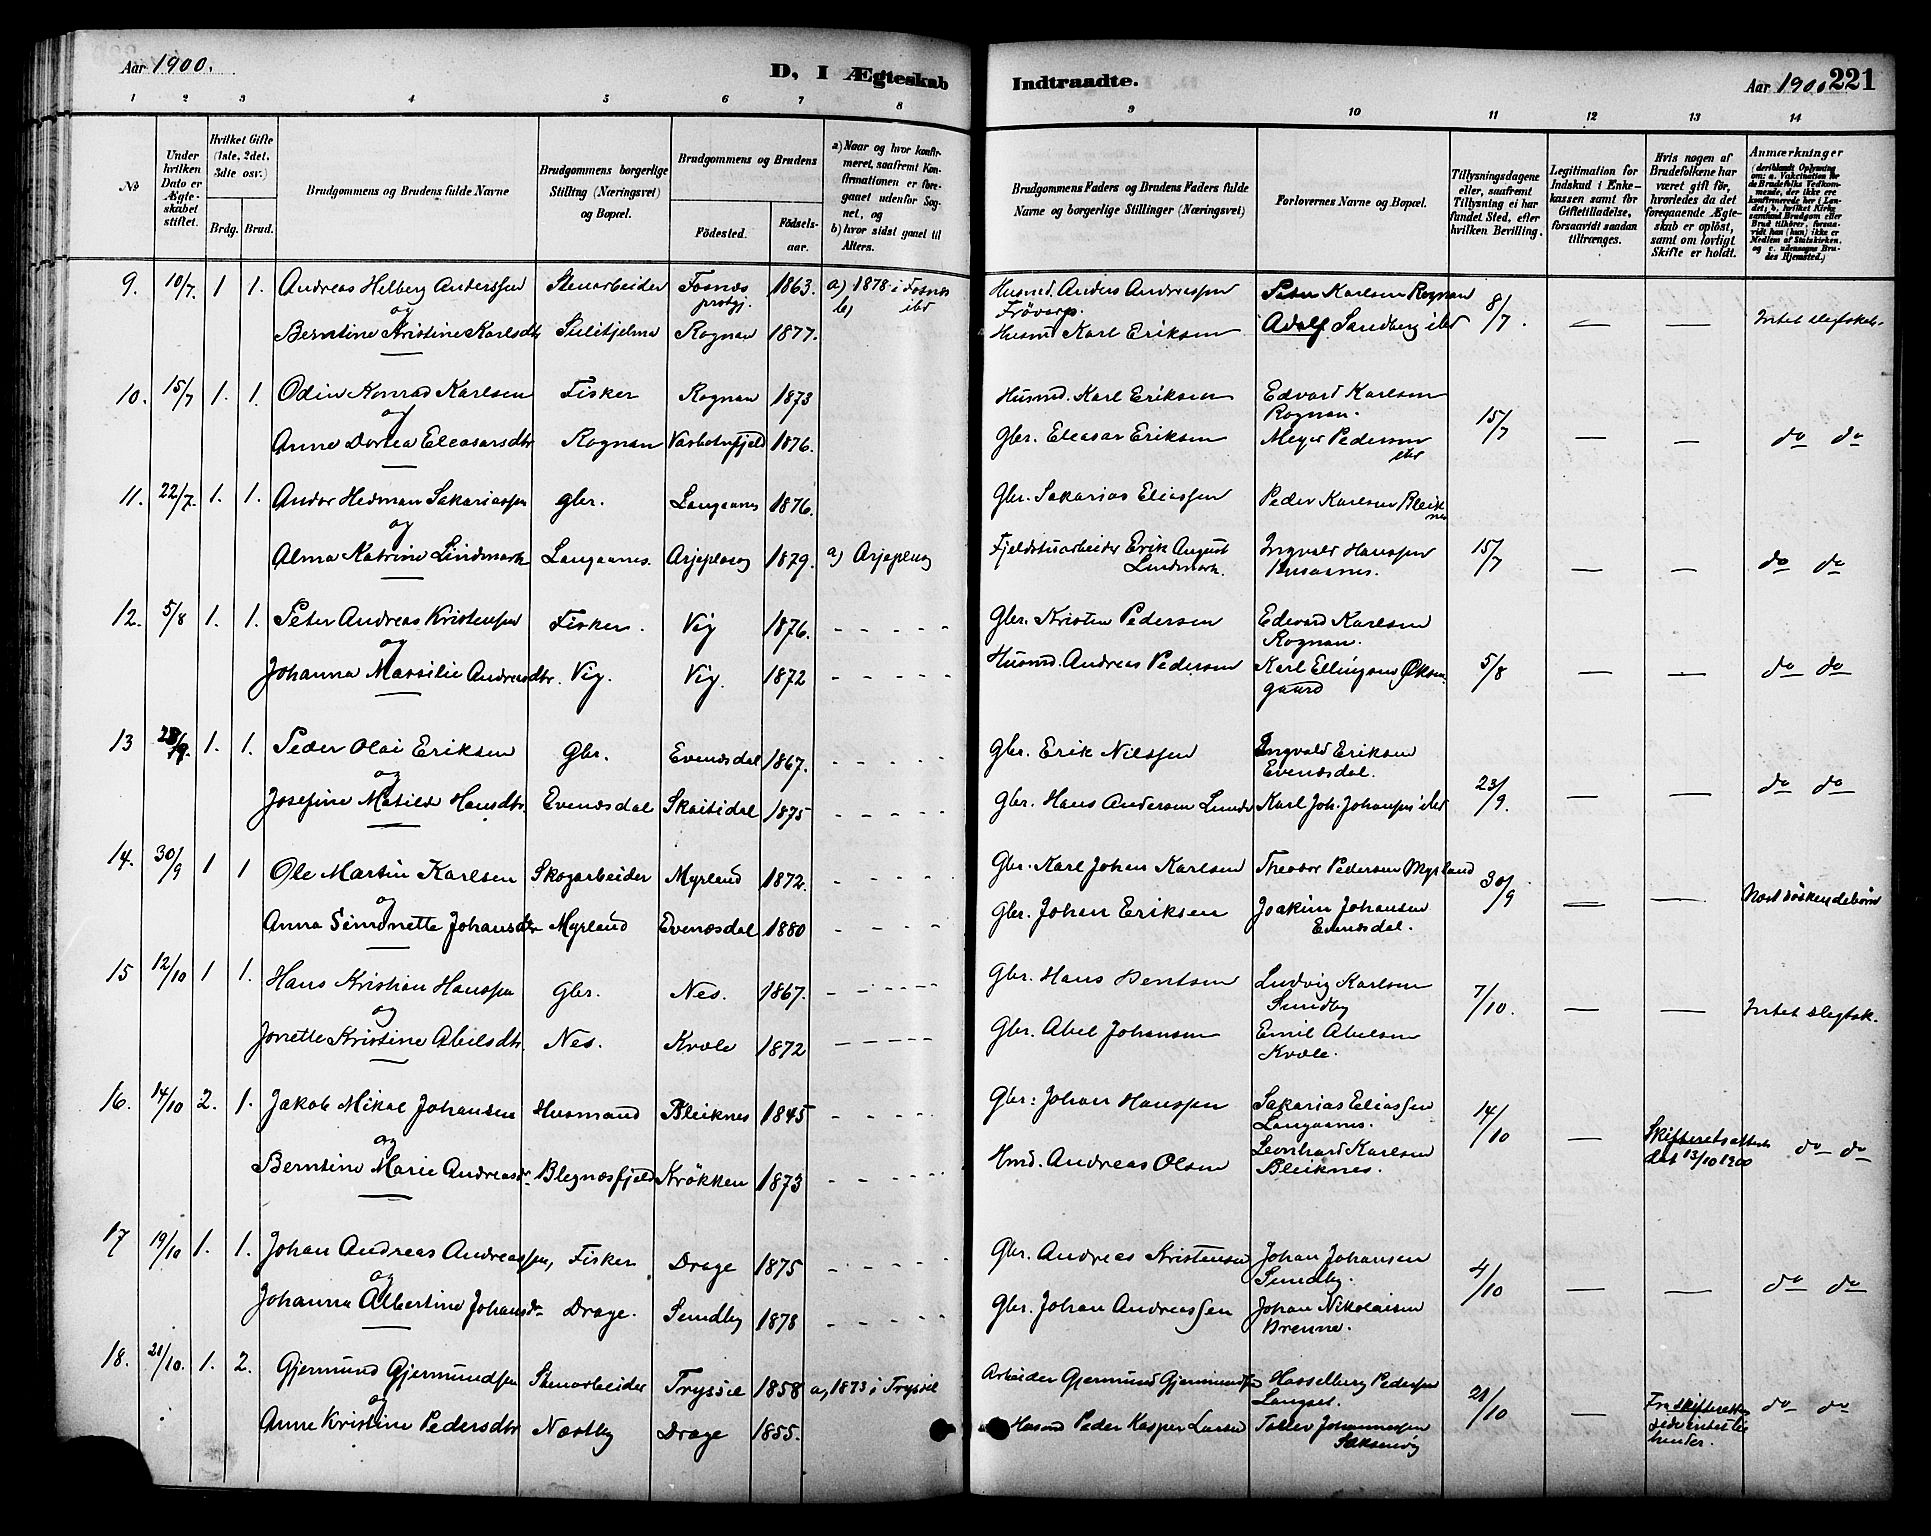 Aar 1900.
D, I Ægteskab
Indtraadte.
Aar 1900 221
1 2 3 4 5 6 7 8 9 10 11 12 13 14
No
Under hvilken Dato er Ægteskabet stiftet.
Hvilket Gifte (1ste, 2det, 3die osv.)
Brdg. Brud.
Brudgommens og Brudens fulde Navne
Brudgommens borgerlige Stilling (Næringsvei) og Bopæl.
Brudgommens og Brudens
Fødested. Fødselsaar.
a) Naar og hvor konfirmeret, saafremt Konfirmationen er foregaaet udenfor Sognet, og
b) hvor sidst gaaet til Alters.
Brudgommens Faders og Brudens Faders fulde Navne og borgerlige Stillinger (Næringsvei)
Forlovernes Navne og Bopæl.
Tillysningsdagene eller, saafremt Tillysning ei har fundet Sted, efter hvilken Bevilling.
Legitimation for Indskud i Enkekassen samt for Giftetilladelse, forsaavidt saadan tiltrænges.
Hvis nogen af Brudefolkene har været gift før, hvorledes da det foregaaende Ægteskab er opløst, samt om lovligt Skifte er holdt.
Anmærkninger
9. 10/7. 1 1. Andreas Helberg Anderssen Stenarbeider Fosnæs prstgj. 1863. a) 1878 i Fosnæs b) ibd Husmd. Anders Andreassen Peter Karlsen Rognan 8/7. — — Intet slegtskab.
og
Berntine Kristine Karlsdtr Sulitjelma Rognan 1877. Husmd Karl Eriksen Adolf Sandberg ibd
10. 15/7 1. 1. Odin Konrad Karlsen Fisker Rognan 1873 Husmd. Karl Eriksen Edvard Karlsen Rognan. 15/7 — — do do
og
Anne Dortea Eleasarsdtr Rognan Vasbotnfjeld 1876. Gbr. Eleasar Eriksen Meyer Pedersen ibd
11. 22/7. 1. 1. Andor Hedman Sakariassen gbr. Langaanes 1876. Gbr. Sakarias Eliassen Peder Karlsen Bleiknes 15/7 — — do do
og
Alma Katrine Lindmark Langaanes. Arjeploug 1879. a) Arjeploug Fjeldstuarbeider Erik August Lindmark. Ingvald Hanssen
12. 5/8 1. 1. Peter Andreas Kristensen Fisker. Vig 1876. - - - - - Gbr. Kristen Pedersen Edvard Karlsen Rognan. 5/8 — — do do
og
Johanna Massilie Andreasdtr. Vig. Vig. 1872 - - - - - Husmd. Andreas Pedersen Karl Ellingsen Øksengaard
13 23/9. 1. 1. Peder Olai Eriksen Gbr. Evenæsdal 1867. - - - - - Gbr. Erik Nilssen Ingvald Eriksen Evenæsdal. 23/9. — — do do
og
Josefine Matilde Hansdtr. Evenæsdal Skaitidal 1875 - - - - - Gbr. Hans Andersen Lund Karl Joh. Johansen ibd
14. 30/9 1 1 Ole Martin Karlsen Skogarbeider Myrland 1872. - - - - Gbr. Karl Johan Karlsen Theodor Pedersen Myrland 30/9 — — Næstsøskendebørn
og
Anna Simonette Johansdtr Myrland Evenæsdal 1880 - - - - Gbr. Johan Eriksen Joakim Johansen Evenæsdal.
15 12/10 1 1. Hans Kristian Hanssen Gbr. Nes. 1867. - - - - - Gbr. Hans Bentsen Ludvig Karlsen Sundby 7/10. — — Intet slegtsk.
og
Jonette Kristine Abelsdtr. Nes. Kvæle 1872 - - - - - Gbr. Abel Johansen Emil Abelsen Kvæle.
16. 14/10 2. 1. Jakob Mikal Johansen Husmand Bleiknes 1845 - - - - Gbr: Johan Hanssen Sakarias Eliassen Langaanes. 14/10 — Skifteretsattest dat 13/10 1900 do do
og
Berntine Marie Andreasdr. Blegnæsfjeld Krökken 1873 - - - - - Hmd. Andreas Olsen Leonhard Karlsen Bleiknes.
17 19/10 1. 1. Johan Andreas Andreassen, Fisker Drage 1875 - - - - - Gbr. Andreas Kristensen Johan Johansen Sundby. 4/10 — — do do
og
Johanna Albertine Johansdr. Drage. Sundby 1878 - - - - - Gbr. Johan Andreassen Johan Nikolaisen Brenne.
18. 21/10. 1. 2. Gjermund Gjermundsen Stenarbeider Tryssil 1858 a, 1873 i Tryssil Arbeider Gjermund Gjermundsen Hasselberg Pedersen 21/10 — Fra skifteretten do do
og
Anne Kristine Pedersdtr Næstby Drage 1855. Husmd Peder Kasper Larsen Tollev Johannessen Saksenvig